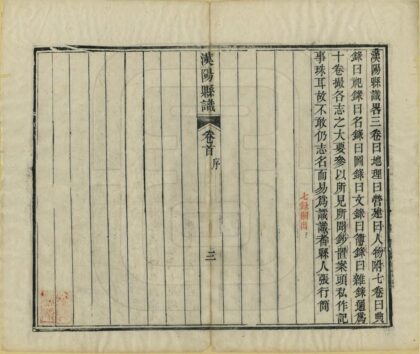 漢陽縣識畧三卷曰地理曰營建曰人物附七卷曰典
錄曰說錄曰名錄曰圖錄曰文錄曰書錄曰雜錄通爲
十卷撮各志之大要參以所見所聞鈔譄案頭私作記
事珠耳故不敢仍志名而易爲識識者縣人張行簡
漢陽縣識
卷首
序
三